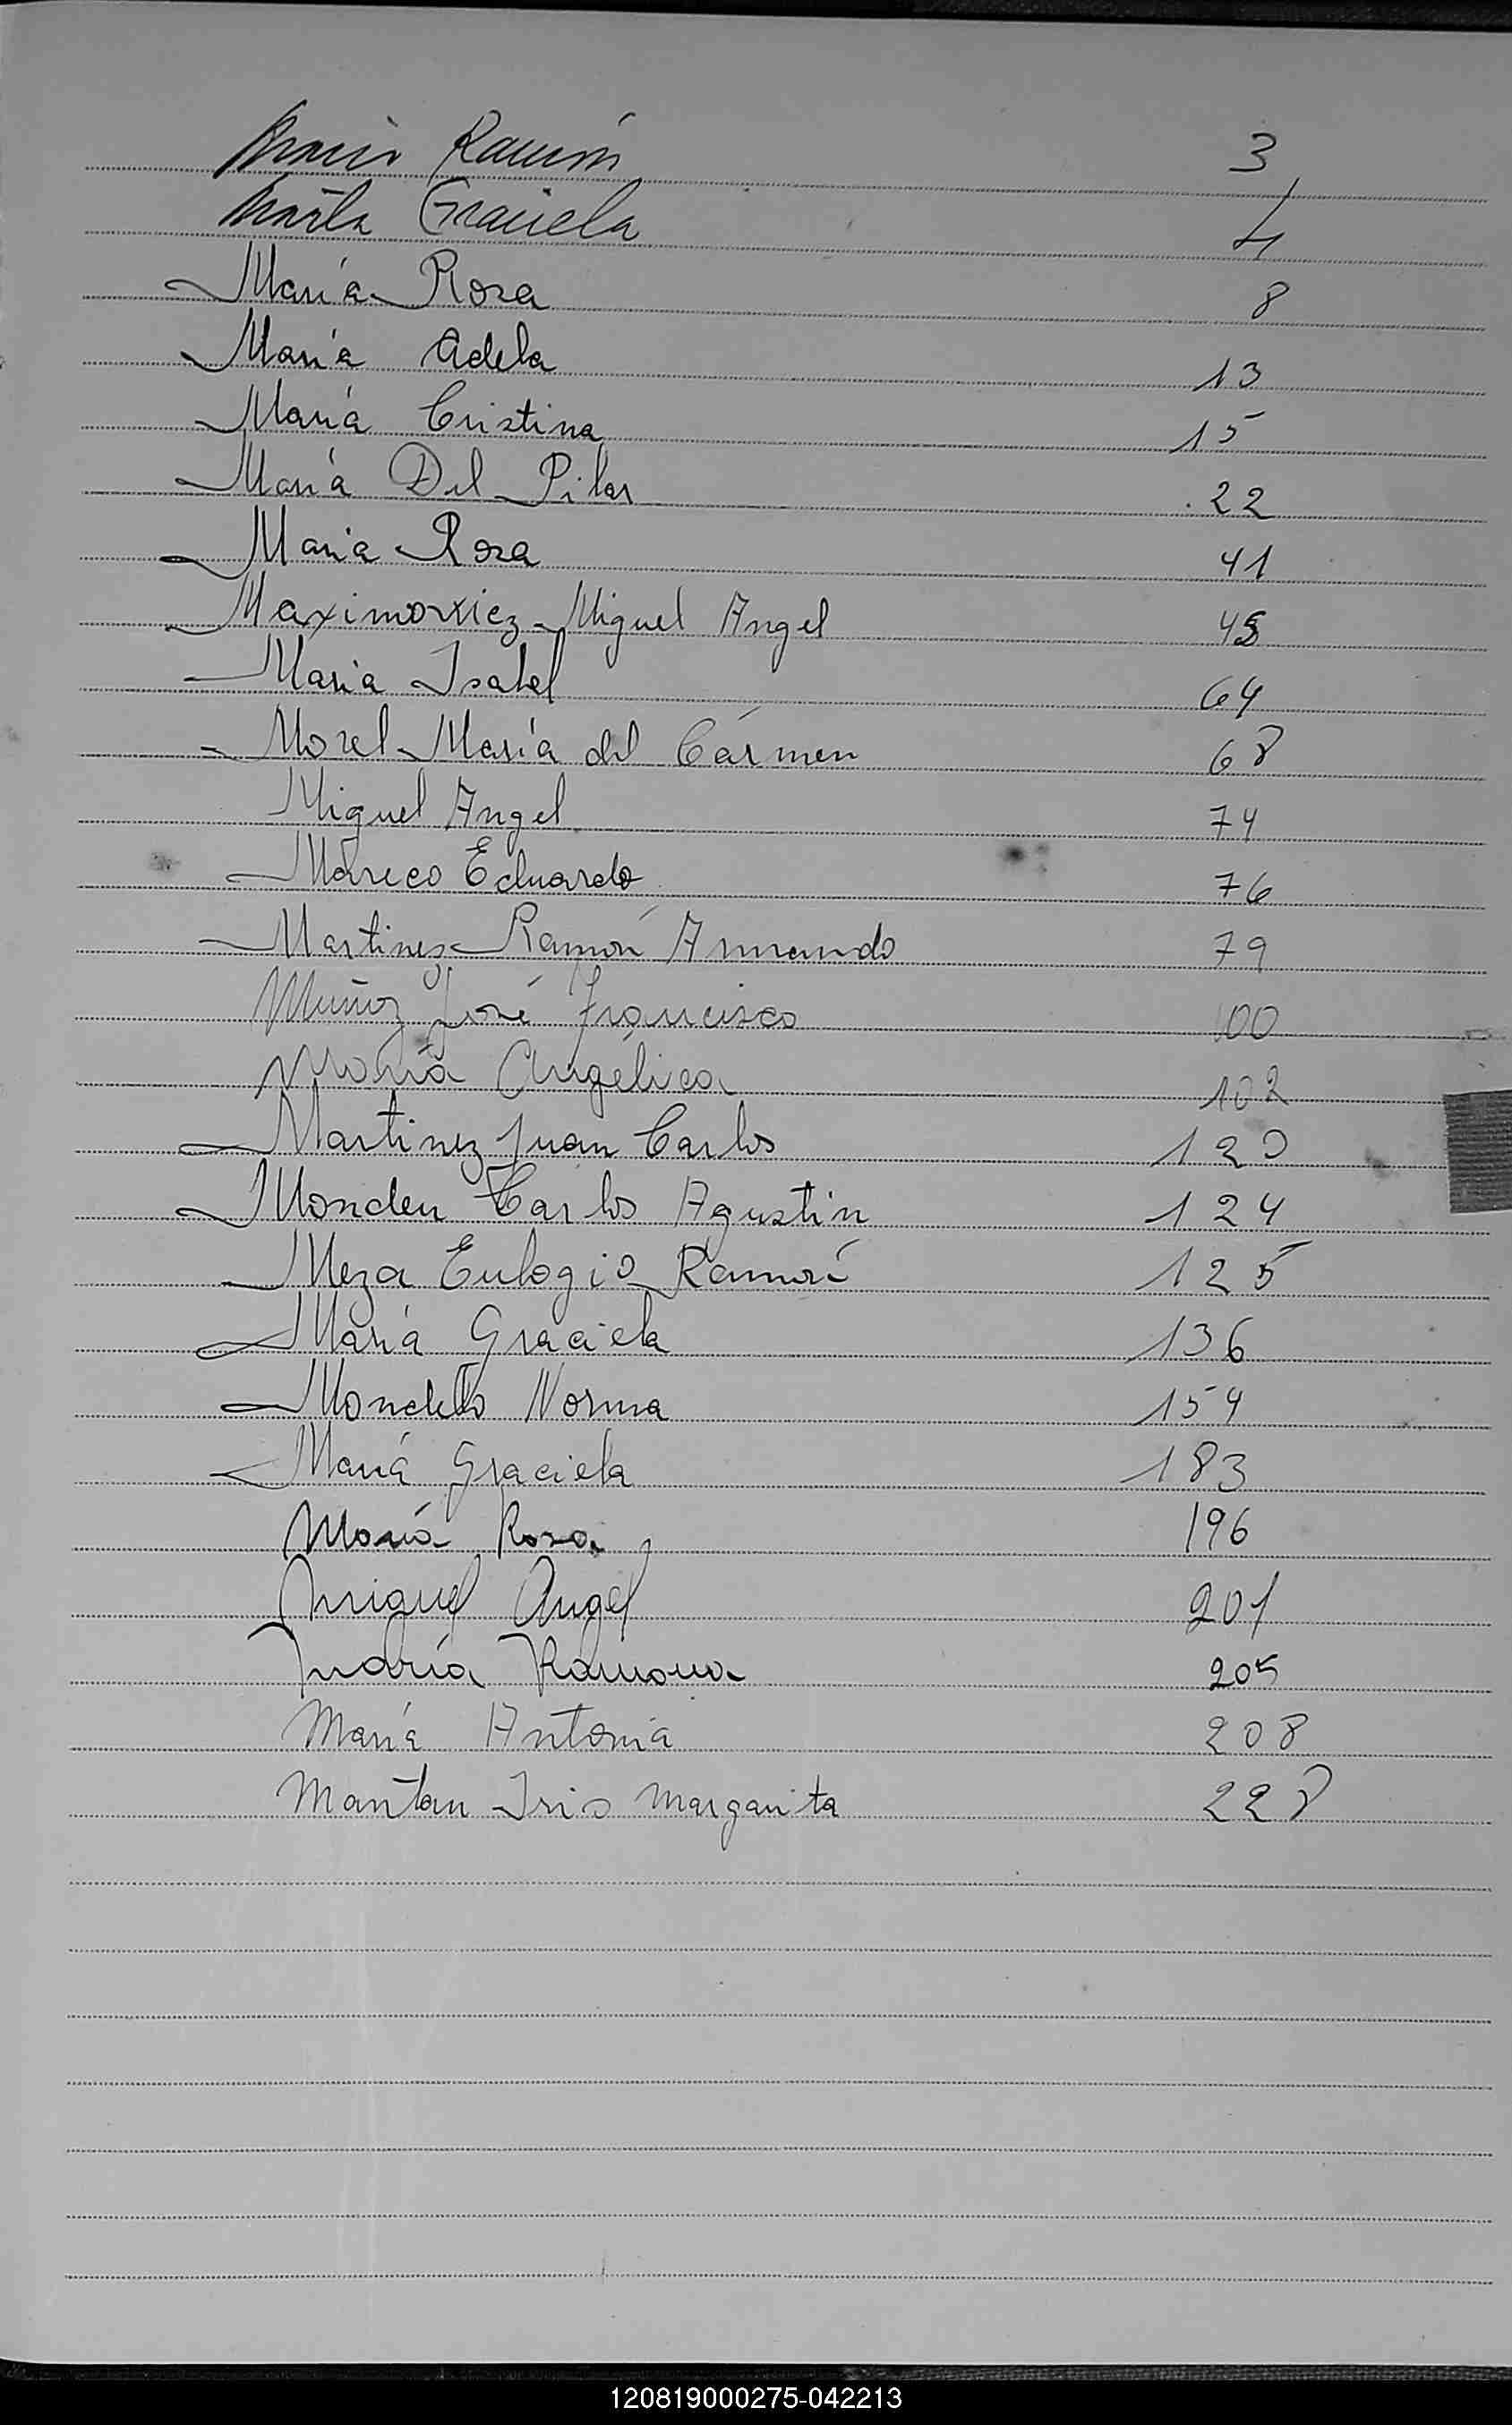 Mario Ramón 3
Marta Graciela 4
María Rosa 8
María Adela 13
María Cristina 15
María Del Pilar 22
María Rosa 41
Maximowiez Miguel Angel 48
María Isabel 64
Morel María del Cármen 68
Miguel Angel 74
Mareco Eduardo 76
Martinez Ramón Armando 79
Muñoz José Francisco 100
María Angélica 102
Martinez Juan Carlos 120
Carlos Agustin 124
Meza Eulogio Ramón 125
María Graciela 136
Norma 154
María Graciela 183
María Rosa 196
Miguel Angel 201
María Ramona 205
María Antonia 208
Iris Margarita 228
120819000275-042213